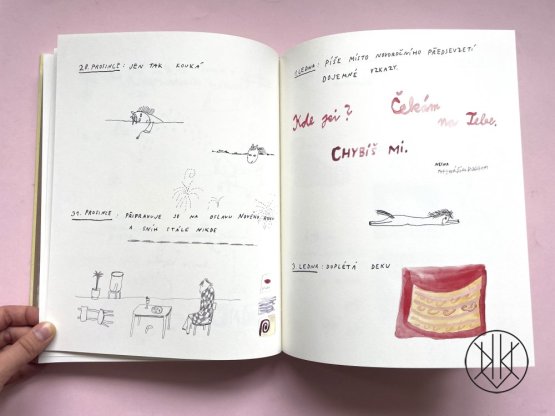 28. PROSINCE: JEN TAK KOUKÁ
31. PROSINCE: PŘIPRAVUJE SE NA OSLAVU NOVÉHO ROKU
A SNÍH STÁLE NIKDE
LEDNA: PÍŠE MÍSTO NOVOROČNÍHO PŘEDSEVZETÍ
DOJEMNÉ VZKAZY.
Kde jsi?
Čekám
na Tebe.
CHYBÍŠ MI.
3 LEDNA: DOPLÉTÁ DEKU